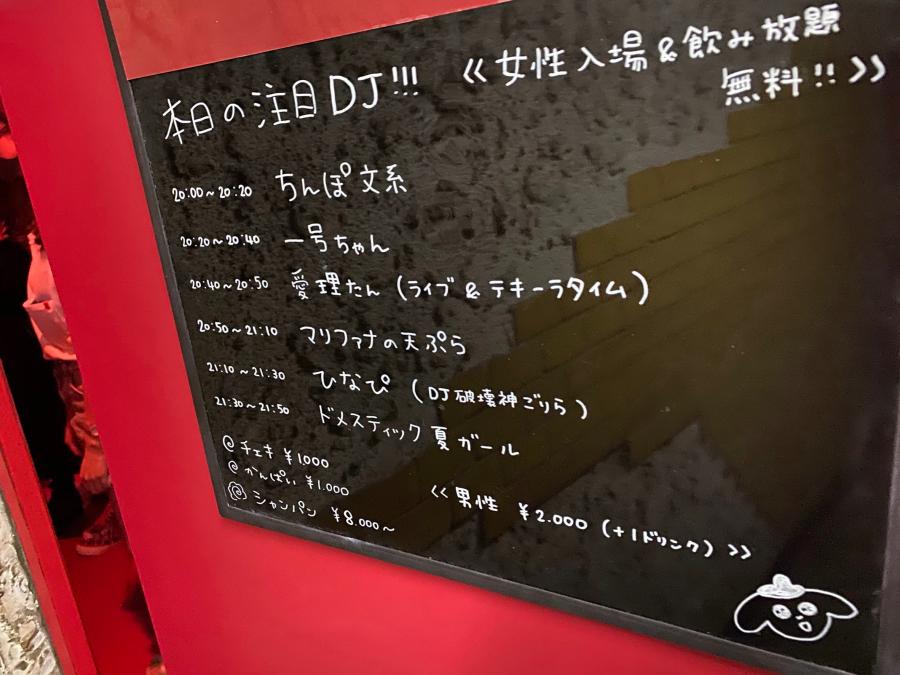 本日の注目DJ!!! 《女性入場&飲み放題
無料!!》
20:00~20:20 ちんぽ文系
20:20~20:40 一号ちゃん
20:40~20:50 愛理たん (ライブ & テキーラタイム)
20:50~21:10 マリファナの天ぷら
21:10~21:30 ひなぴ (DJ破壊神ごりら)
21:30~21:50 ドメスティック夏ガール
@チェキ ¥1,000
@かんぱい ¥1.000
@シャンパン ¥8.000~
《男性 ¥2.000 (+1ドリンク)》